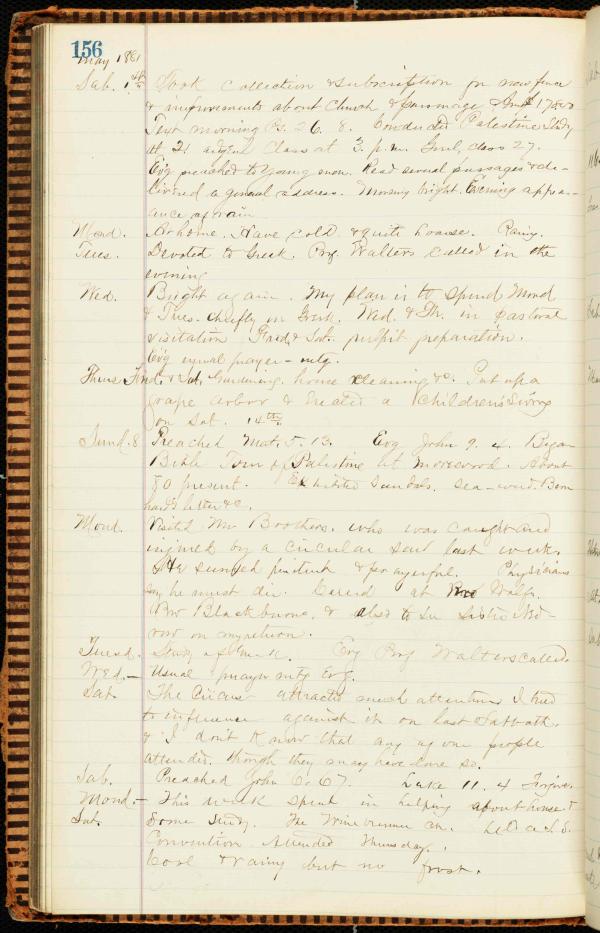 156
May 1881
Sab. 1st Took collection & subscription for new fence
& improvements about Church & parsonage Amt $178.00
Text morning Ps. 26. 8. Conducted Palestine Study
at 2½ Class at 3. p.m. Genl. class 27.
Evg preached to young men. Read several passages & de-
livered a general address. Morning bright. Evening appear-
ance of rain
Mond. At home. Have cold & quite hoarse. Rainy.
Tues. Devoted to Greek. Bro. Walters called in the
evening
Wed. Bright again. My plan is to spend Mond
& Tues. chiefly in Greek. Wed. & Th. in pastoral
visitation Frid. & Sat. pulpit preparation.
Evg usual prayer-mtg.
Thurs Frid. & Sat. Gardening, house cleaning &c. Put up a
grape arbor & Erected a Children's Swing
on Sat. 14th
Sund. 8 Preached Mat. 5. 13. Evg John 9. 4. Began
Bible Tour of Palestine at . About
80 present. Exhibited Sandals, sea-weed.
letter &c.
Mond. Visited Mr Boothers. who was caught and
injured by a circular saw last week.
He seemed penitent & prayerful. Physicians
say he must die. Called at Wolfs.
Bro Blackburne, & also to see Sister Mor-
row on my return.
Tuesd. Study of Greek. Evg Bro Walters called.
Wed.— Usual prayer mtg Evg.
Sat. The Circus attracted much attention I tried
to influence against it on last Sabbath.
& I don't know that any of our people
attended. though they may have done so.
Sab. Preached John 6. 67. Luke 11. 4
Mond.— This week spent in helping about house &
Sat. Some study. The Winebrenner Ch. held a S.S.
Convention. Attended Thursday.
Cool & rainy but no frost.